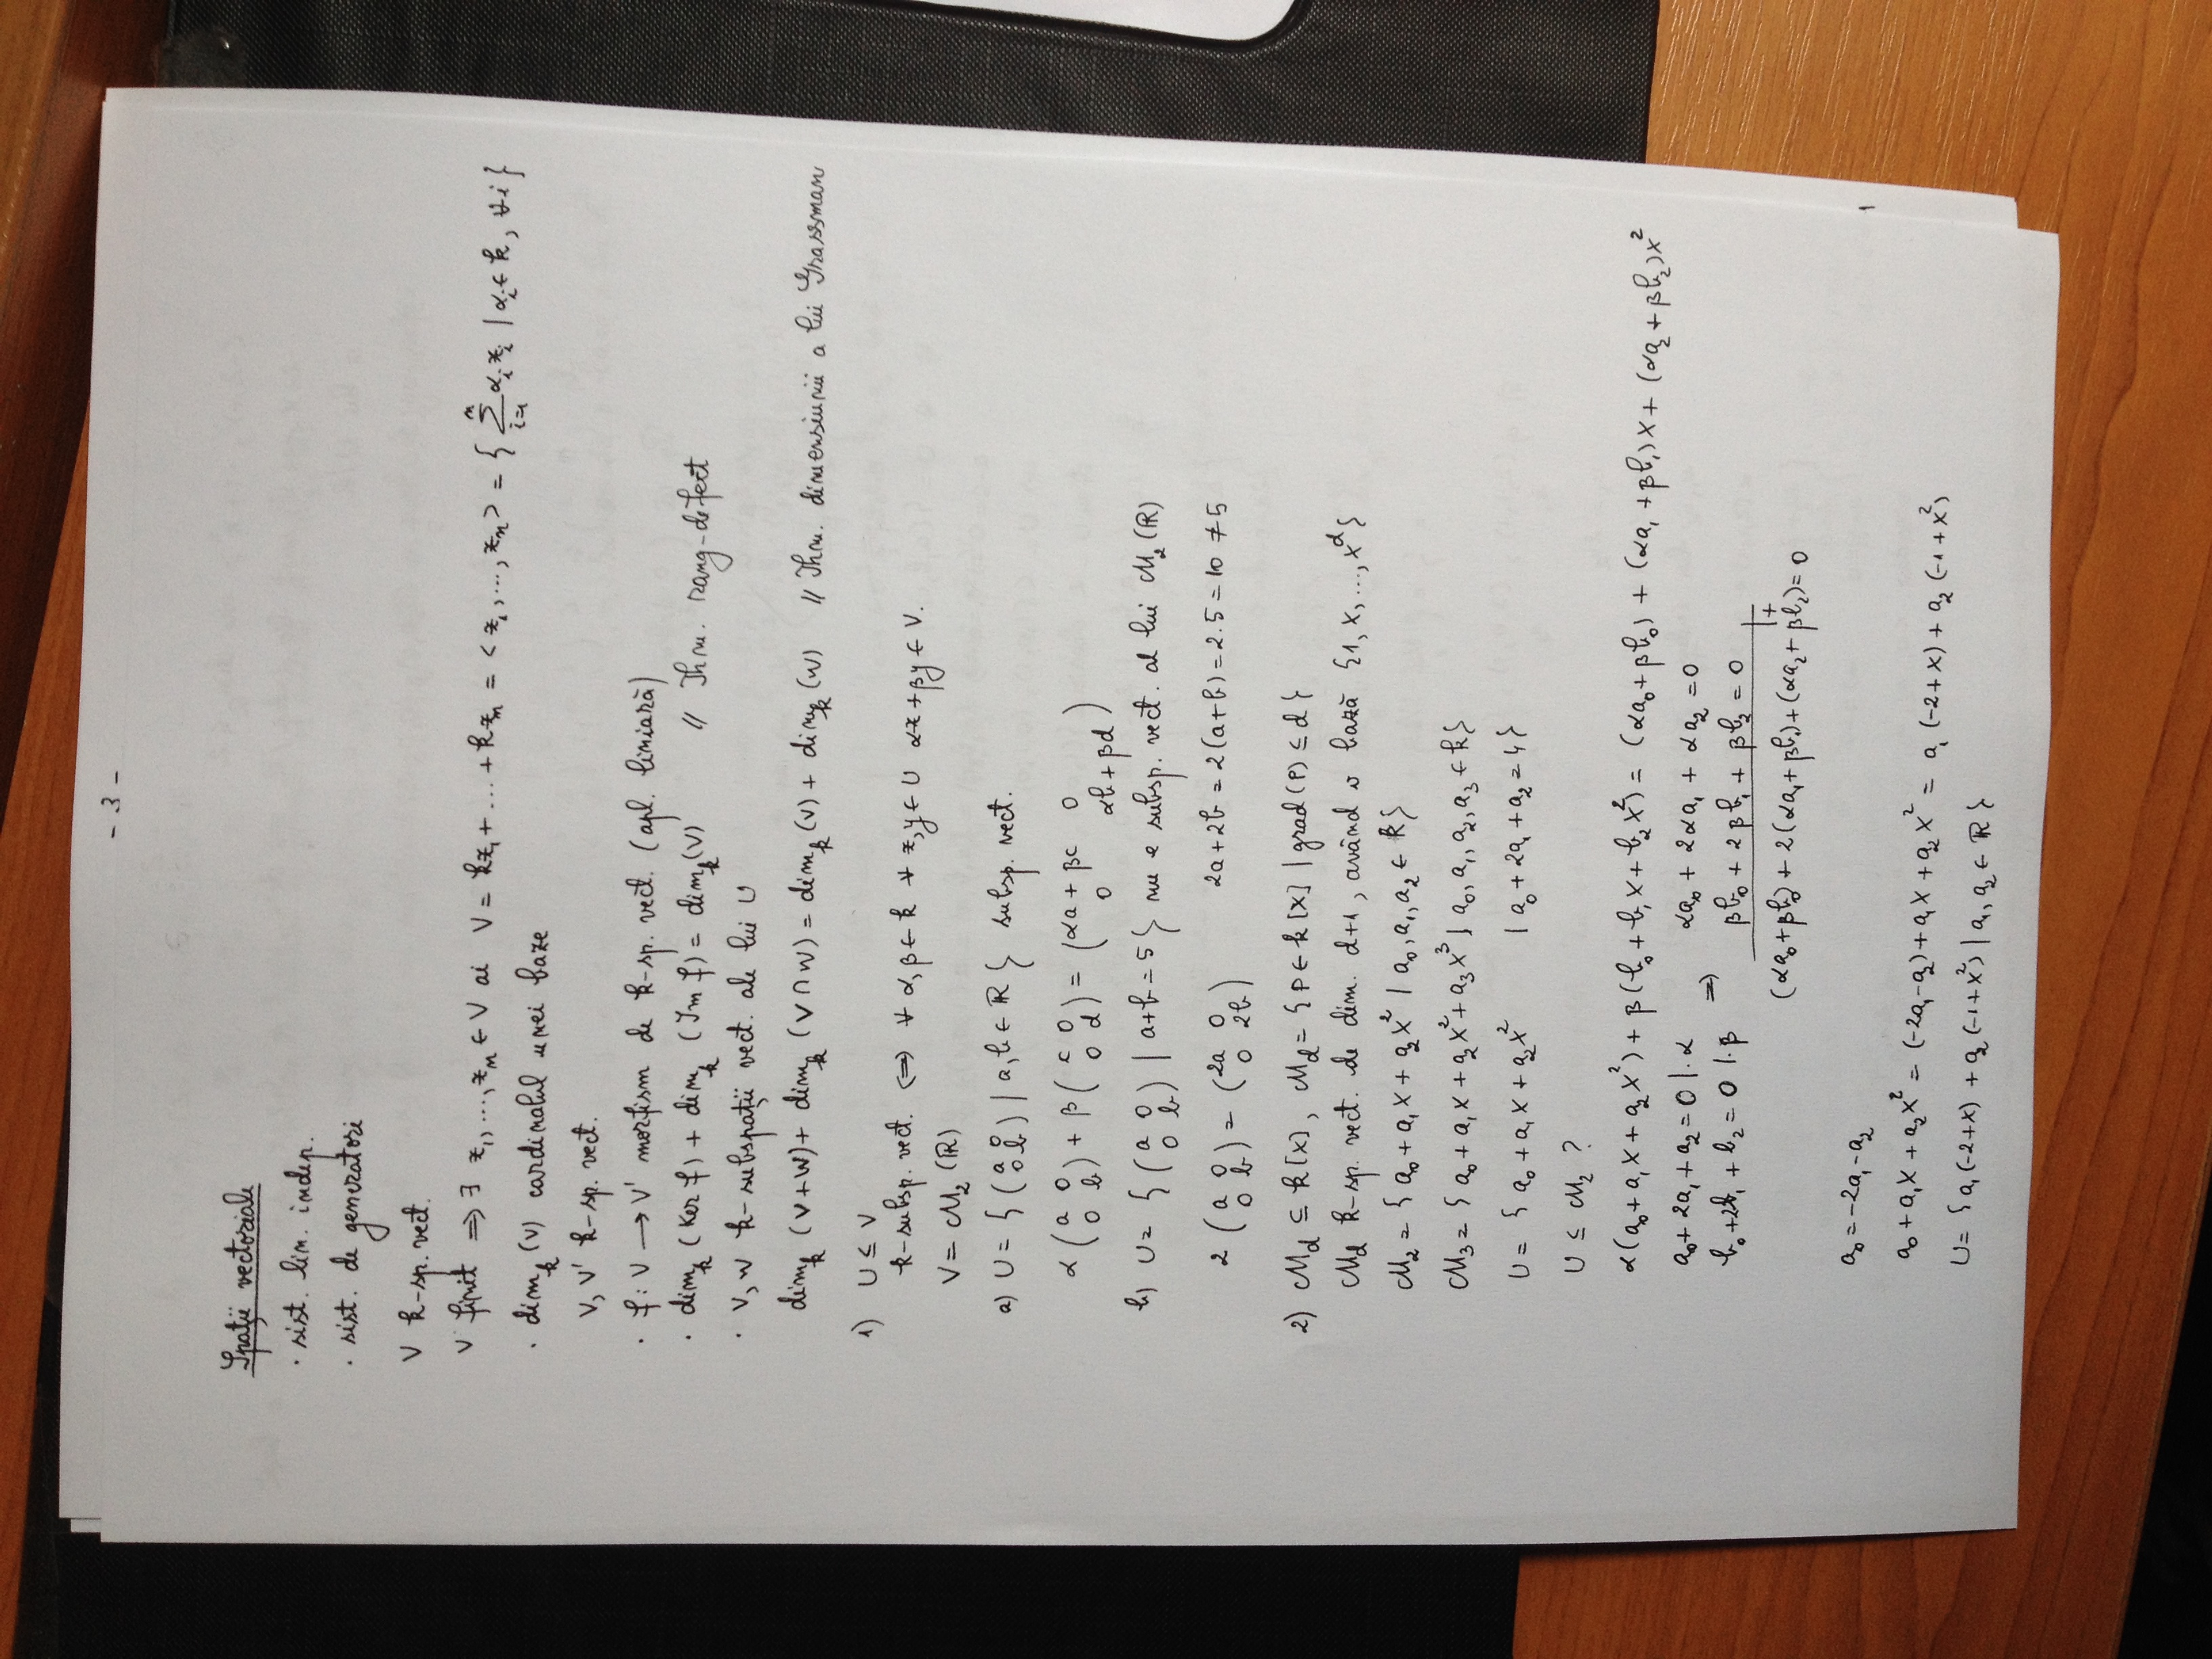 - 3 -
Spații vectoriale
· sist. lin. indep.
· sist. de generatori
V k-sp. vect.
V finit ⇒ ∃ x₁, ..., xₙ ∈ V ai V = kx₁ + ... + kxₙ = <x₁, ..., xₙ> = { ∑ᵢ₌₁ⁿ αᵢxᵢ | αᵢ ∈ k, ∀i }
· dimₖ(V) cardinalul unei baze
V, V' k-sp. vect.
· f: V → V' morfism de k-sp. vect. (apl. liniară)
· dimₖ (Ker f) + dimₖ (Im f) = dimₖ(V) // Thm. rang-defect
· V, W k-subspații vect. ale lui U
dimₖ (V+W) + dimₖ (V ∩ W) = dimₖ(V) + dimₖ(W) // Thm. dimensiunii a lui Grassman
1) U ≤ V
k-subsp. vect. ⇔ ∀ α, β ∈ k ∀ x, y ∈ U αx + βy ∈ V.
V = M₂ (ℝ)
a) U = { (a 0 ; 0 b) | a, b ∈ ℝ } subsp. vect.
α (a 0 ; 0 b) + β (c 0 ; 0 d) = (αa + βc 0 ; 0 αb + βd)
b) U = { (a 0 ; 0 b) | a+b = 5 } nu e subsp. vect. al lui M₂(ℝ)
2 (a 0 ; 0 b) = (2a 0 ; 0 2b) 2a + 2b = 2(a+b) = 2.5 = 10 ≠ 5
2) M_d ⊆ k[X], M_d = { P ∈ k[X] | grad(P) ≤ d }
M_d k-sp. vect. de dim. d+1, având o bază {1, X, ..., X^d}
M₂ = { a₀ + a₁X + a₂X² | a₀, a₁, a₂ ∈ k }
M₃ = { a₀ + a₁X + a₂X² + a₃X³ | a₀, a₁, a₂, a₃ ∈ k }
U = { a₀ + a₁X + a₂X² | a₀ + 2a₁ + a₂ = 4 }
U ≤ M₂ ?
α(a₀ + a₁X + a₂X²) + β(b₀ + b₁X + b₂X²) = (αa₀ + βb₀) + (αa₁ + βb₁)X + (αa₂ + βb₂)X²
a₀ + 2a₁ + a₂ = 0 |·α ⇒ αa₀ + 2αa₁ + αa₂ = 0
b₀ + 2b₁ + b₂ = 0 |·β βb₀ + 2βb₁ + βb₂ = 0 |+
(αa₀ + βb₀) + 2(αa₁ + βb₁) + (αa₂ + βb₂) = 0
a₀ = -2a₁ - a₂
a₀ + a₁X + a₂X² = (-2a₁ - a₂) + a₁X + a₂X² = a₁(-2+X) + a₂(-1+X²)
U = { a₁(-2+X) + a₂(-1+X²) | a₁, a₂ ∈ ℝ }
1